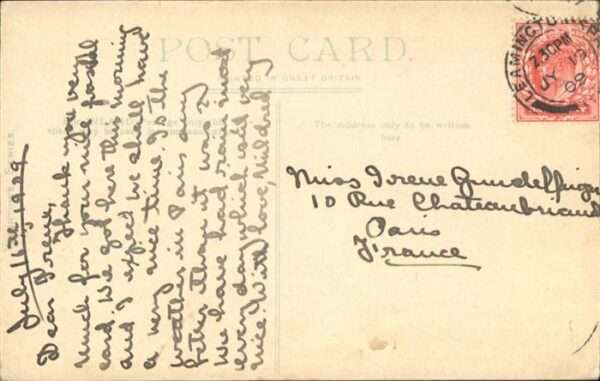 POST CARD.
IN GREAT BRITAIN
The Address only to be written
here
LEAMINGTON SPA
7.30PM
JY
09
July 16th 1909
Dear Irene,
Thank you very
much for your nice postal
card. We got here this morning
and I expect we shall have
a very nice time. Is the
weather in Paris any
better than it was?
We have had rain most
every day which isn't very
nice. With love, Mildred.
Miss Irene Gundelfinger
10 Rue Chateaubriand
Paris
France